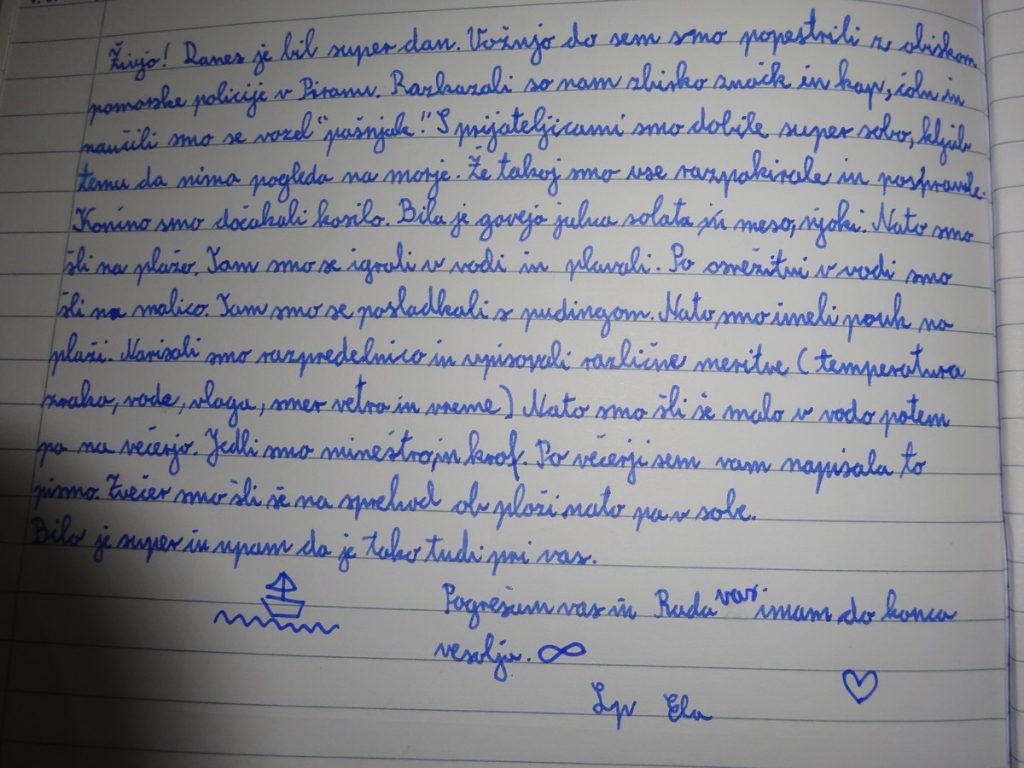 Živjo! Danes je bil super dan. Vožnjo do sem smo popestrili z obiskom
pomorske policije v Piranu. Razkazali so nam zbirko značk in kap, čoln in
naučili smo se vozel "pašnjak". S prijateljicami smo dobile super sobo, kljub
temu da nima pogleda na morje. Že takoj smo vse razpakirale in pospravile.
Konino smo dočakali kosilo. Bila je goveja juhua solata in meso, njoki. Nato smo
šli na plažo. Tam smo se igrali v vodi in plavali. Po osvežitvi v vodi smo
šli na malico. Tam smo se posladkali s pudingom. Nato, smo imeli pouk na
plaži. Narisali smo razpredelnico in vpisovali različne meritve (temperatura
zraka, vode, vlaga, smer vetra in vreme) Nato smo šli še malo v vodo potem
pa na večerjo. Jedli smo mineštro, in krof. Po večerji sem vam napisala to
pismo. Zvečer smo šli še na sprehod ob plaži nato pa v sobe.
Bilo je super in upam da je tako tudi pri vas.
Pogrešam vas in Rada vas imam do konca
vesolja. ∞
Lp Ela